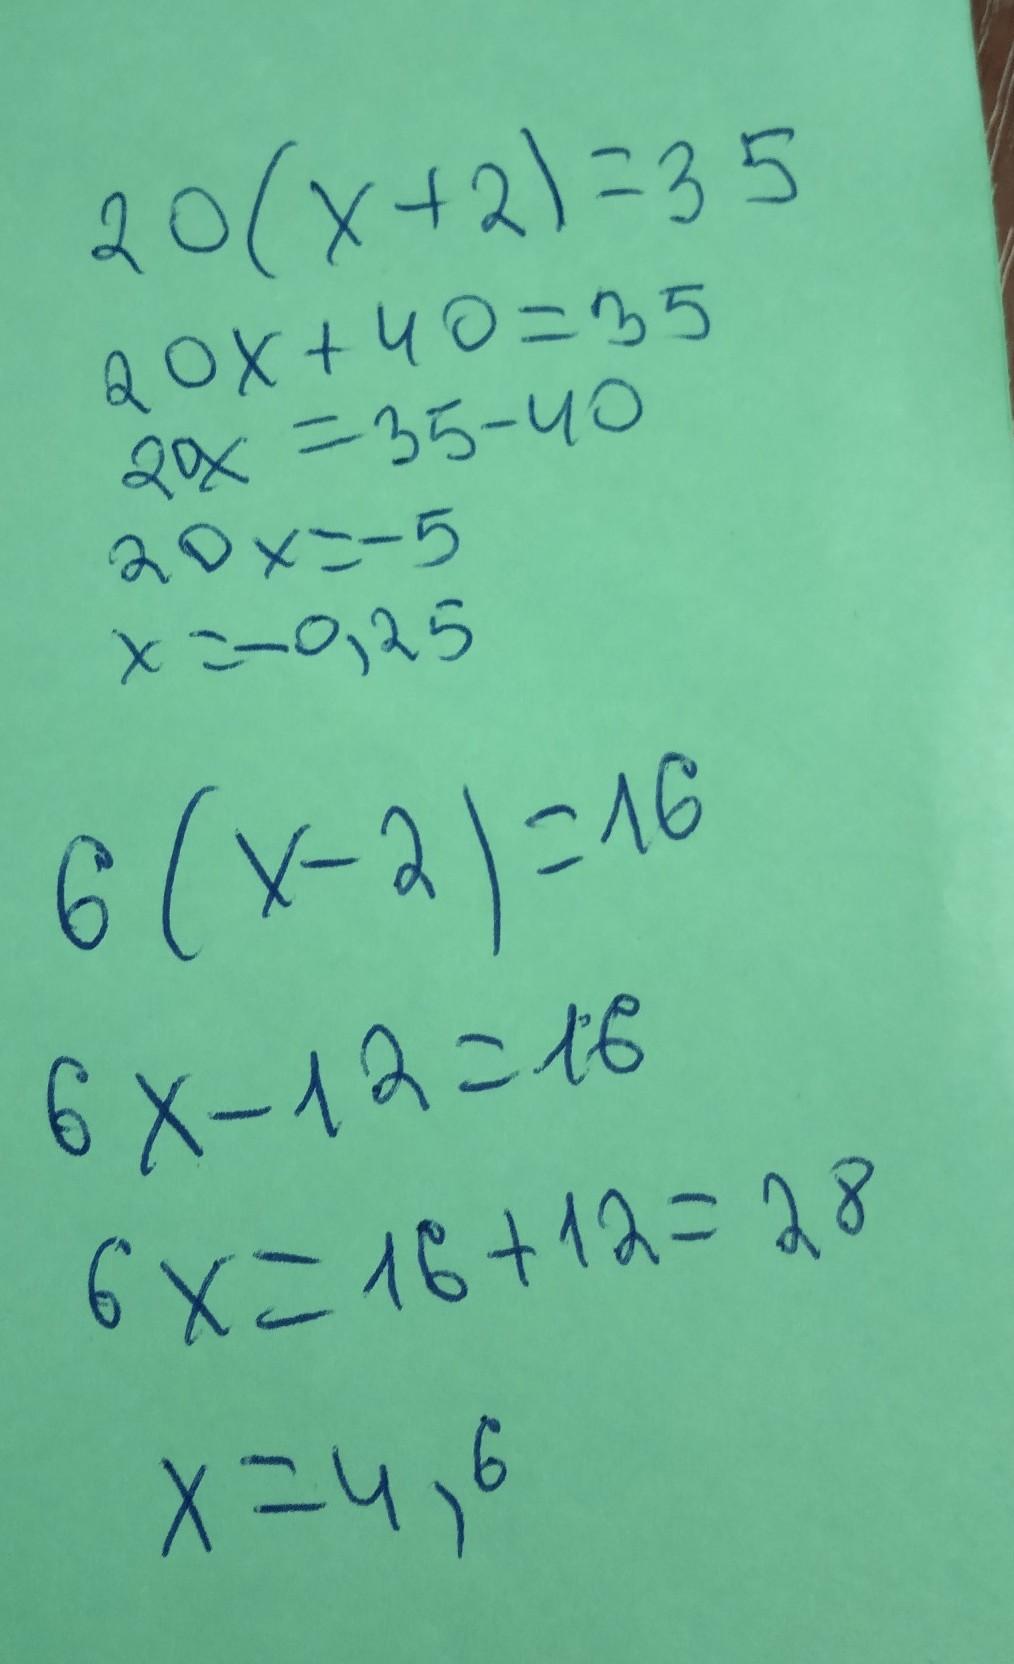 20(x+2)=35
20x+40=35
20x=35-40
20x=-5
x=-0,25
6(x-2)=16
6x-12=16
6x=16+12=28
x=4,6